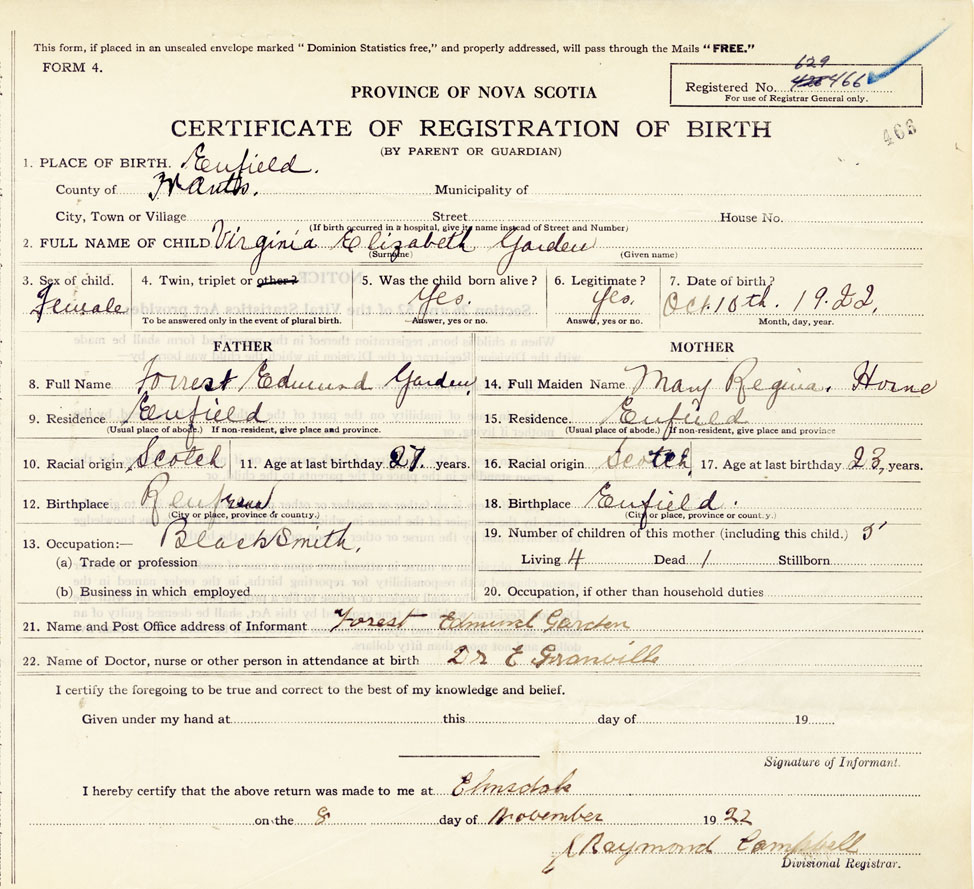 This form, if placed in an unsealed envelope marked "Dominion Statistics free," and properly addressed, will pass through the Mails "FREE."
FORM 4.
629
Registered No. 466
For use of Registrar General only.
PROVINCE OF NOVA SCOTIA
466
CERTIFICATE OF REGISTRATION OF BIRTH
(BY PARENT OR GUARDIAN)
1. PLACE OF BIRTH. Enfield.
County of Hants. Municipality of
City, Town or Village Street House No.
(If birth occurred in a hospital, give its name instead of Street and Number)
2. FULL NAME OF CHILD Virginia Elizabeth Garden
(Surname) (Given name)
3. Sex of child. 4. Twin, triplet or other? 5. Was the child born alive? 6. Legitimate? 7. Date of birth?
Female Yes. Yes. Oct. 10th. 1922.
To be answered only in the event of plural birth. Answer, yes or no. Answer, yes or no. Month, day, year.
FATHER MOTHER
8. Full Name Forrest Edmund Garden 14. Full Maiden Name Mary Regina. Horne
9. Residence Enfield 15. Residence. Enfield
(Usual place of abode.) If non-resident, give place and province. (Usual place of abode.) If non-resident, give place and province
10. Racial origin Scotch 11. Age at last birthday 27. years. 16. Racial origin Scotch 17. Age at last birthday 23, years.
12. Birthplace Renfrew 18. Birthplace Enfield.
(City or place, province or country.) (City or place, province or country.)
13. Occupation:— BlackSmith. 19. Number of children of this mother (including this child.) 5
(a) Trade or profession Living 4 Dead 1 Stillborn
(b) Business in which employed 20. Occupation, if other than household duties
21. Name and Post Office address of Informant Forest Edmund Garden
22. Name of Doctor, nurse or other person in attendance at birth Dr E Granville
I certify the foregoing to be true and correct to the best of my knowledge and belief.
Given under my hand at this day of 19
Signature of Informant.
I hereby certify that the above return was made to me at Elmsdale
on the 8 day of November 1922
Raymond Campbell
Divisional Registrar.